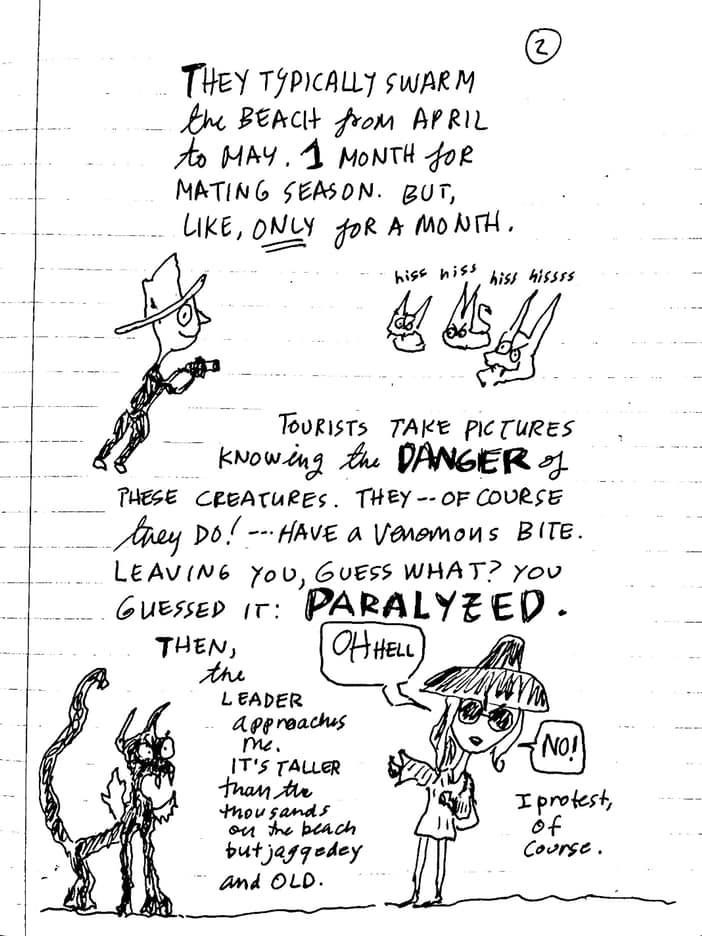 2
THEY TYPICALLY SWARM
the BEACH from APRIL
to MAY. 1 MONTH for
MATING SEASON. BUT,
LIKE, ONLY for A MONTH.
hiss hiss hiss hissss
TOURISTS TAKE PICTURES
KNOWing the DANGER of
THESE CREATURES. THEY--OF COURSE
they DO!---HAVE a Venomous BITE.
LEAVING YOU, GUESS WHAT? YOU
GUESSED IT: PARALYZED.
THEN,
the
LEADER
approaches
me.
IT'S TALLER
than the
thousands
on the beach
but jaggedey
and OLD.
OH HELL
NO!
I protest,
of
course.